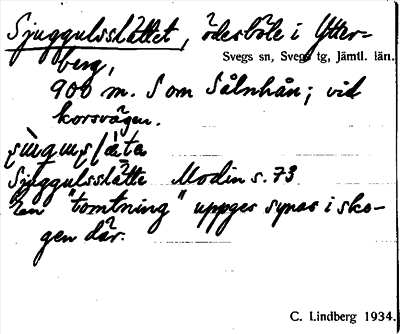 Sjuggulsslåttet, ödesböle i Ytter-
berg,
Svegs sn, Svegs tg, Jämtl. län.
900 m. S om Sålnhån; vid
korsvägen.
Sjuggulsslåtte Modin s. 73
En "tomtning" uppges synas i sko-
gen där.
C. Lindberg 1934.